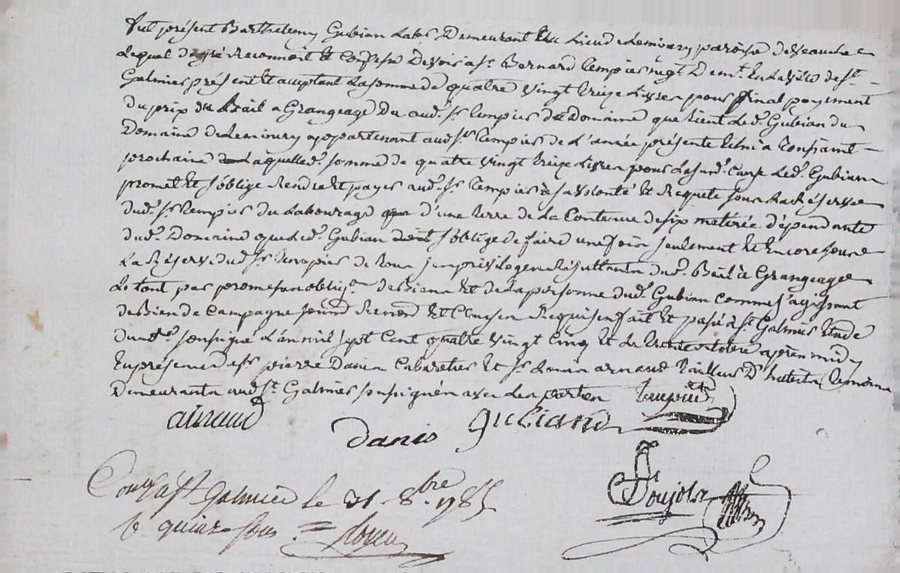 fut présent Barthelemy Gubian Lab.r Demeurant au Lieu de Lemivery paroisse de veauche
Lequel de gré Reconnoit et Confesse Devoir a s.r Bernard tempier neg.t Dem.t En La ville de s.t
Galmier présent et acceptant La somme de quatre vingt treize Livres pour final payement
du prix du Bail a Grangeage Du aud. s.r tempier du Domaine que tient Led. Gubian du
Domaine de appartenant aud. s.r tempier de L'année présente Echu a toussaint
prochaine Laquelle d. somme de quatre vingt treize Livres pour Les sus d. Cause Led. Gubian
promet et s'oblige Rendre et payer aud. s.r tempier à sa volonté et Requete sous La Réserve
dud. s.r tempier du Labourage que d'une terre de La Contenue de six meterée dépendante
dud. Domaine que Led. Gubian s'oblige de faire une fois seulement et Encore sous
La Réserve dud. s.r tempier de tous ses privilege Résultants dud. Bail à Grangeage
Le tout par promesse oblig.on de Biens et de La personne dud. Gubian comme s'agissant
de Bien de Campagne soumis. Renond. et Clauses Requises fait et passé à s.t Galmier Etude
du no.re soussigné L'an mil sept Cent quatre vingt Cinq et Le trente octobre après midy
En présence de s.r pierre Danis Cabaretier et s.r arnaud tailleur D'habits temoins
Demeurants aud. s.t Galmier soussignés avec Les parties tempier
airaud
Danis Gubiand
Doujolx
Con.lé à s.t galmier le 31 8.bre 1785
R. quinze sous